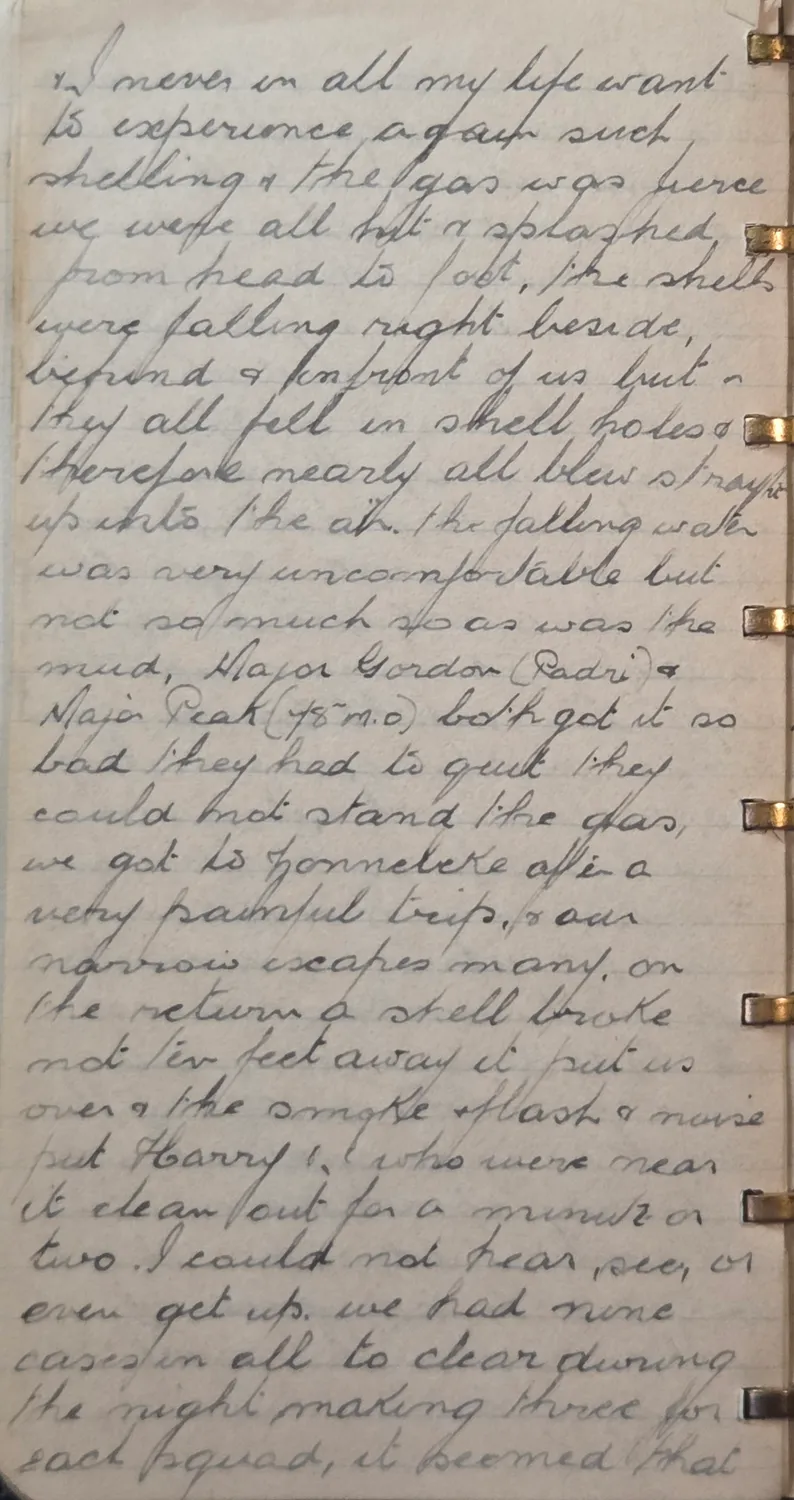 & I never in all my life want
to experience again such
shelling & the gas was fierce
we were all hit & splashed
from head to foot, the shells
were falling right beside,
behind & infront of us but
they all fell in shell holes &
therefore nearly all blew straight
up into the air. the falling water
was very uncomfortable but
not so much so as was the
mud, Major Gordon (Padri) &
Major Peak (48 m.o) both got it so
bad they had to quit they
could not stand the gas,
we got to Zonnebeke after a
very painful trip, & our
narrow escapes many. on
the return a shell broke
not ten feet away it put us
over & the smoke & flash & noise
put Harry & I who were near
it clean out for a minute or
two. I could not hear, see, or
even get up. we had nine
cases in all to clear during
the night making three for
each squad, it seemed that